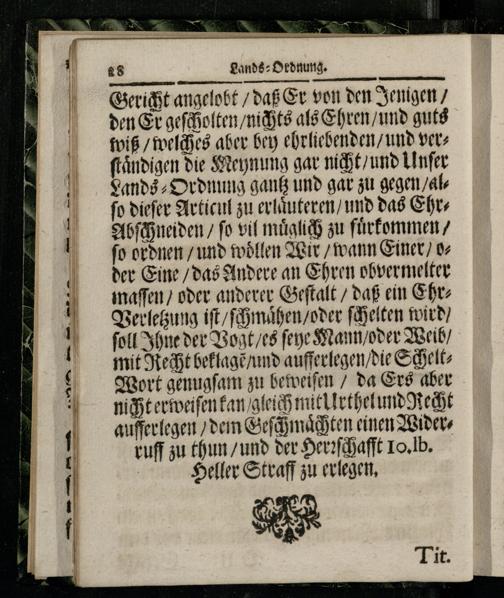 28 Lands-Ordnung.
Gericht angelobt / daß Er von den Jenigen /
den Er gescholten / nichts als Ehren / und guts
wiß / welches aber bey ehrliebenden / und ver-
ständigen die Meynung gar nicht / und Unser
Lands-Ordnung gantz und gar zu gegen / al-
so dieser Articul zu erläuteren / und das Ehr-
Abschneiden / so vil müglich zu fürkommen /
so ordnen / und wöllen Wir / wann Einer / o-
der Eine / das Andere an Ehren obvermelter
massen / oder anderer Gestalt / daß ein Ehr-
Verletzung ist / schmähen / oder schelten wird /
soll Ihne der Vogt / es seye Mann / oder Weib /
mit Recht beklagē / und aufferlegen / die Schelt-
Wort genugsam zu beweisen / da Ers aber
nicht erweisen kan / gleich mit Urthel und Recht
aufferlegen / dem Geschmächten einen Wider-
ruff zu thun / und der Herrschafft 10. lb.
Heller Straff zu erlegen.
Tit.